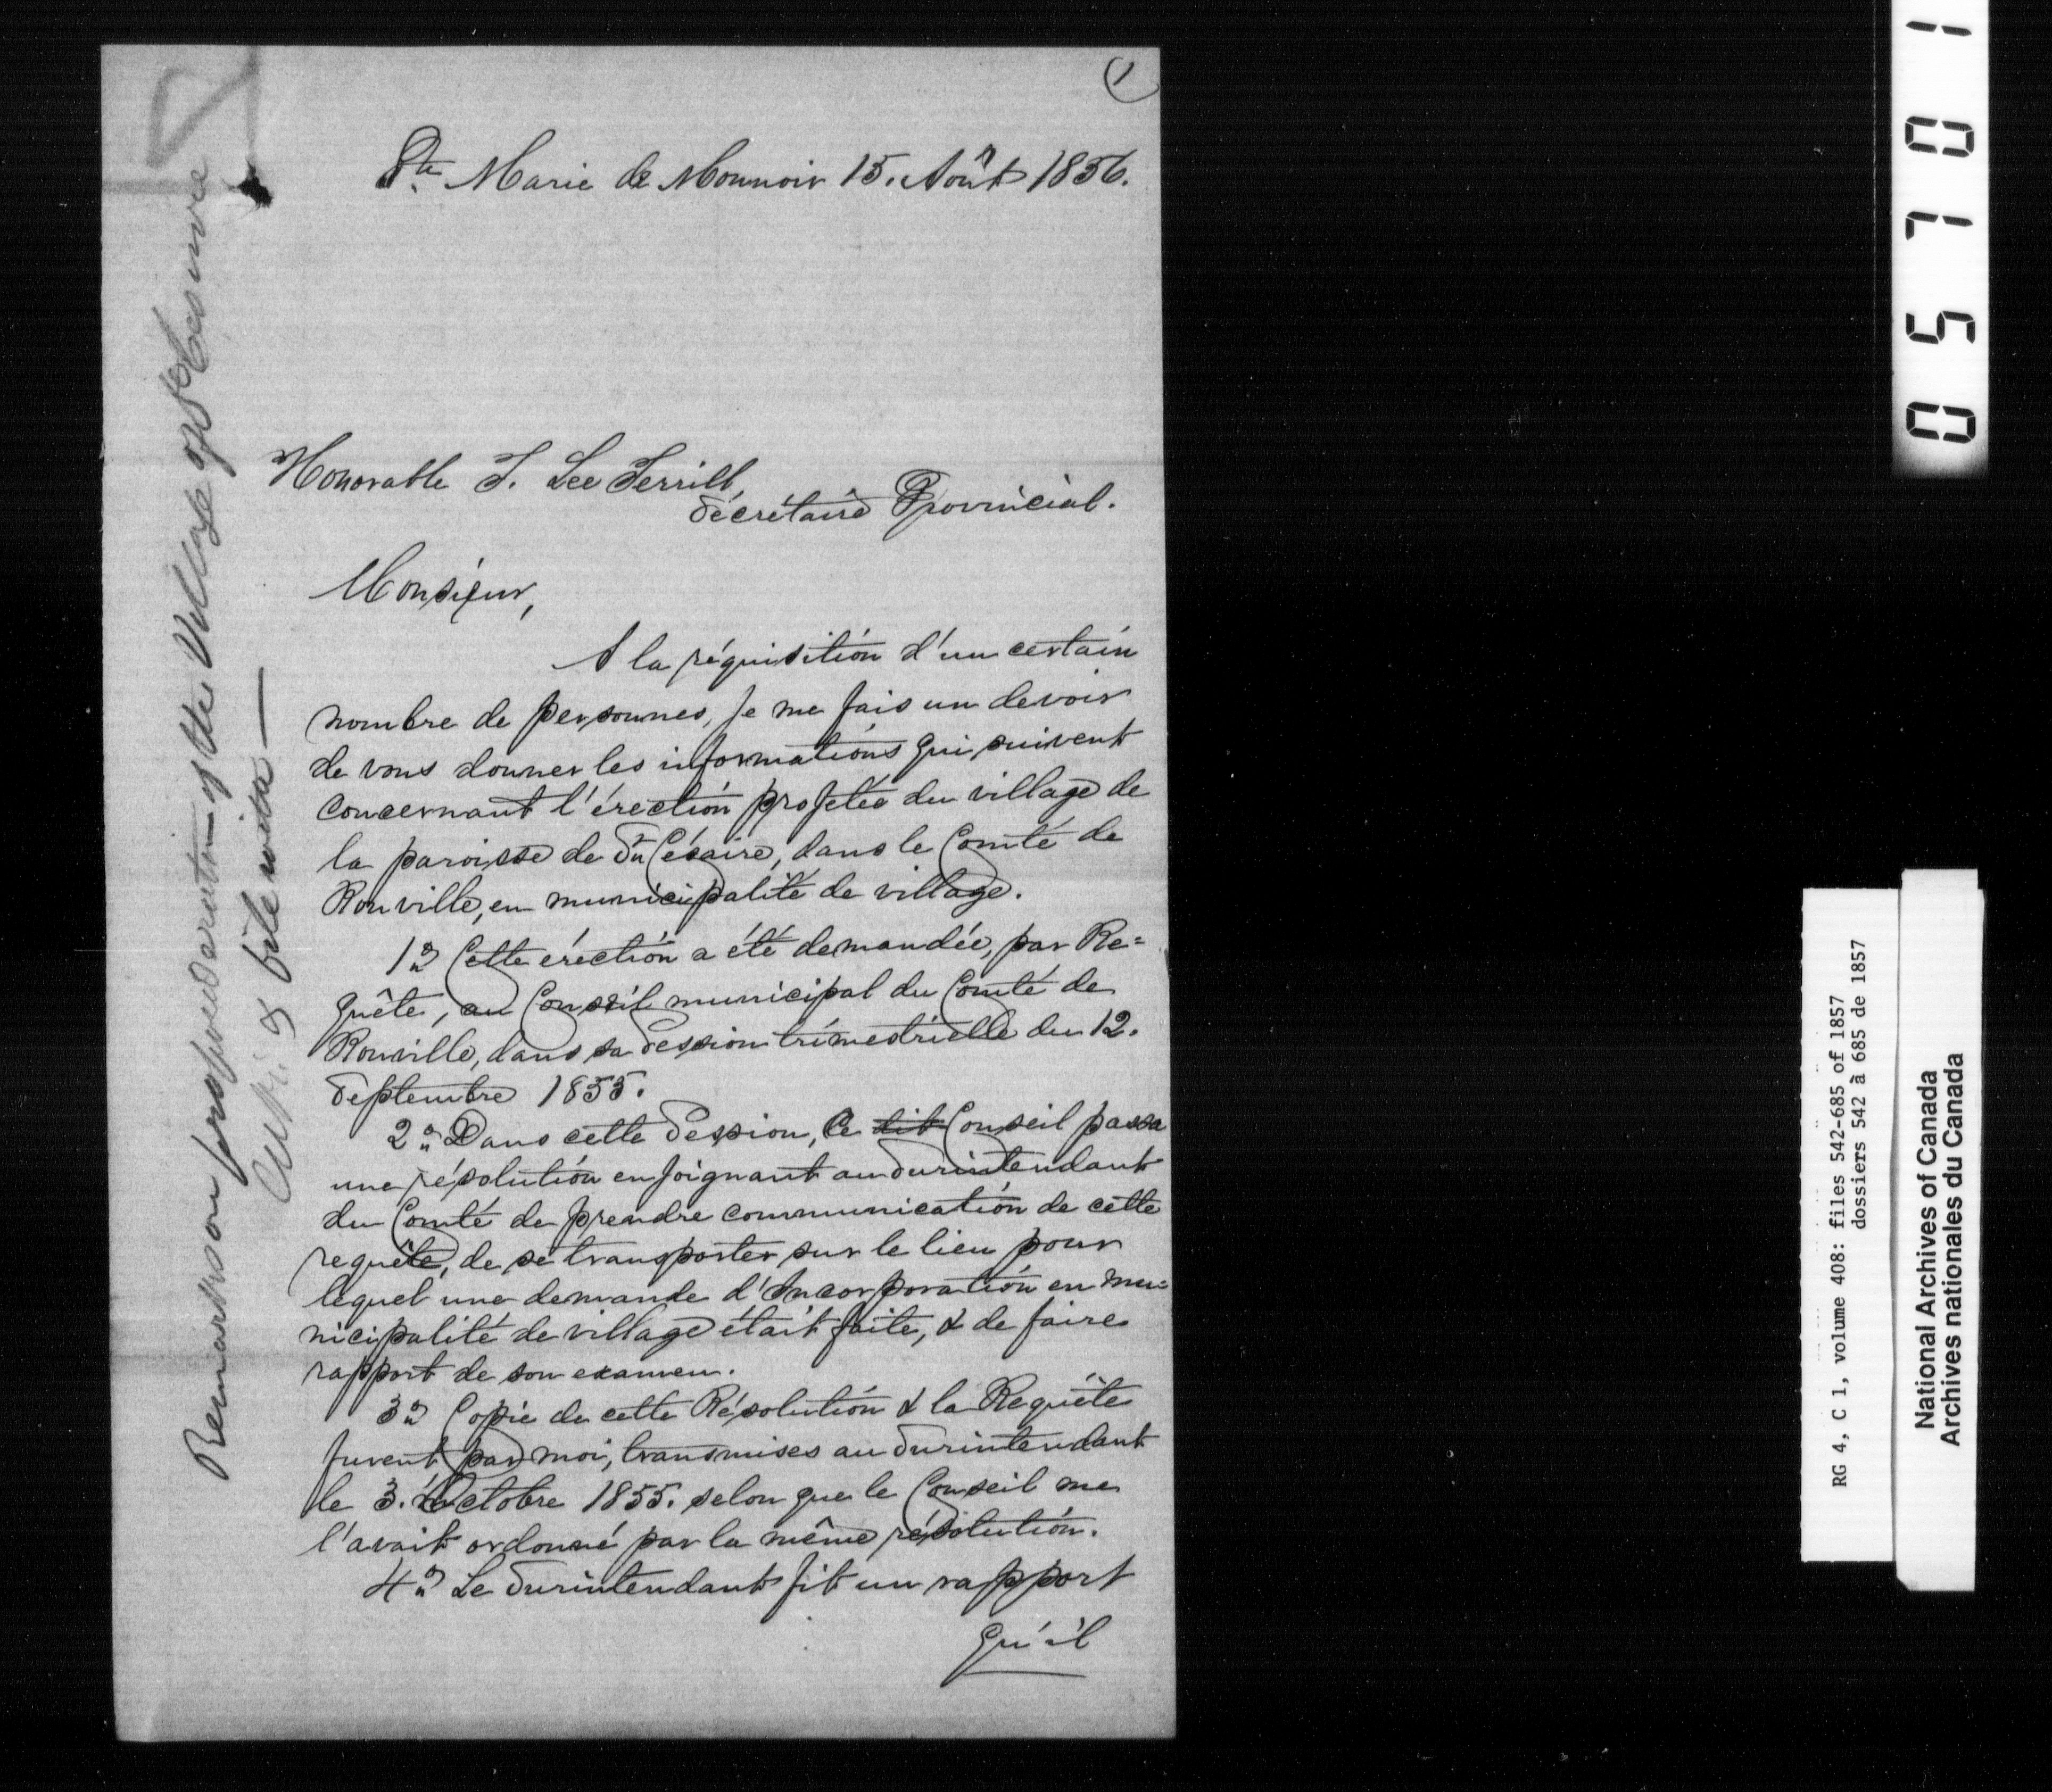 (1
Ste Marie de Monnoir 15. Août 1856.
Honorable T. Lee Terrill,
Secrétaire Provincial.
Monsieur,
A la réquisition d'un certain
nombre de personnes, je me fais un devoir
de vous donner les informations qui suivent
concernant l'érection projetée du village de
la paroisse de St Césaire, dans le Comté de
Rouville, en municipalité de village.
1o Cette érection a été demandée, par Re=
quête, au Conseil municipal du Comté de
Rouville, dans sa Session trimestrielle du 12.
Septembre 1855.
2o Dans cette Session, Ce dit Conseil passa
une résolution enjoignant au Surintendant
du Comté de prendre communication de cette
requête, de se transporter sur le lieu pour
lequel une demande d'Incorporation en mu=
nicipalité de village était faite, & de faire
rapport de son examen.
3o Copie de cette Résolution & la Requête
furent par moi, transmises au Surintendant
le 3. Octobre 1855. selon que le Conseil me
l'avait ordonné par la même résolution.
4o Le Surintendant fit un rapport
qu'il
Remarks on proposed erection of the Village of St Cesaire
& file with
05701
RG 4, C 1, volume 408: files 542-685 of 1857
dossiers 542 à 685 de 1857
National Archives of Canada
Archives nationales du Canada